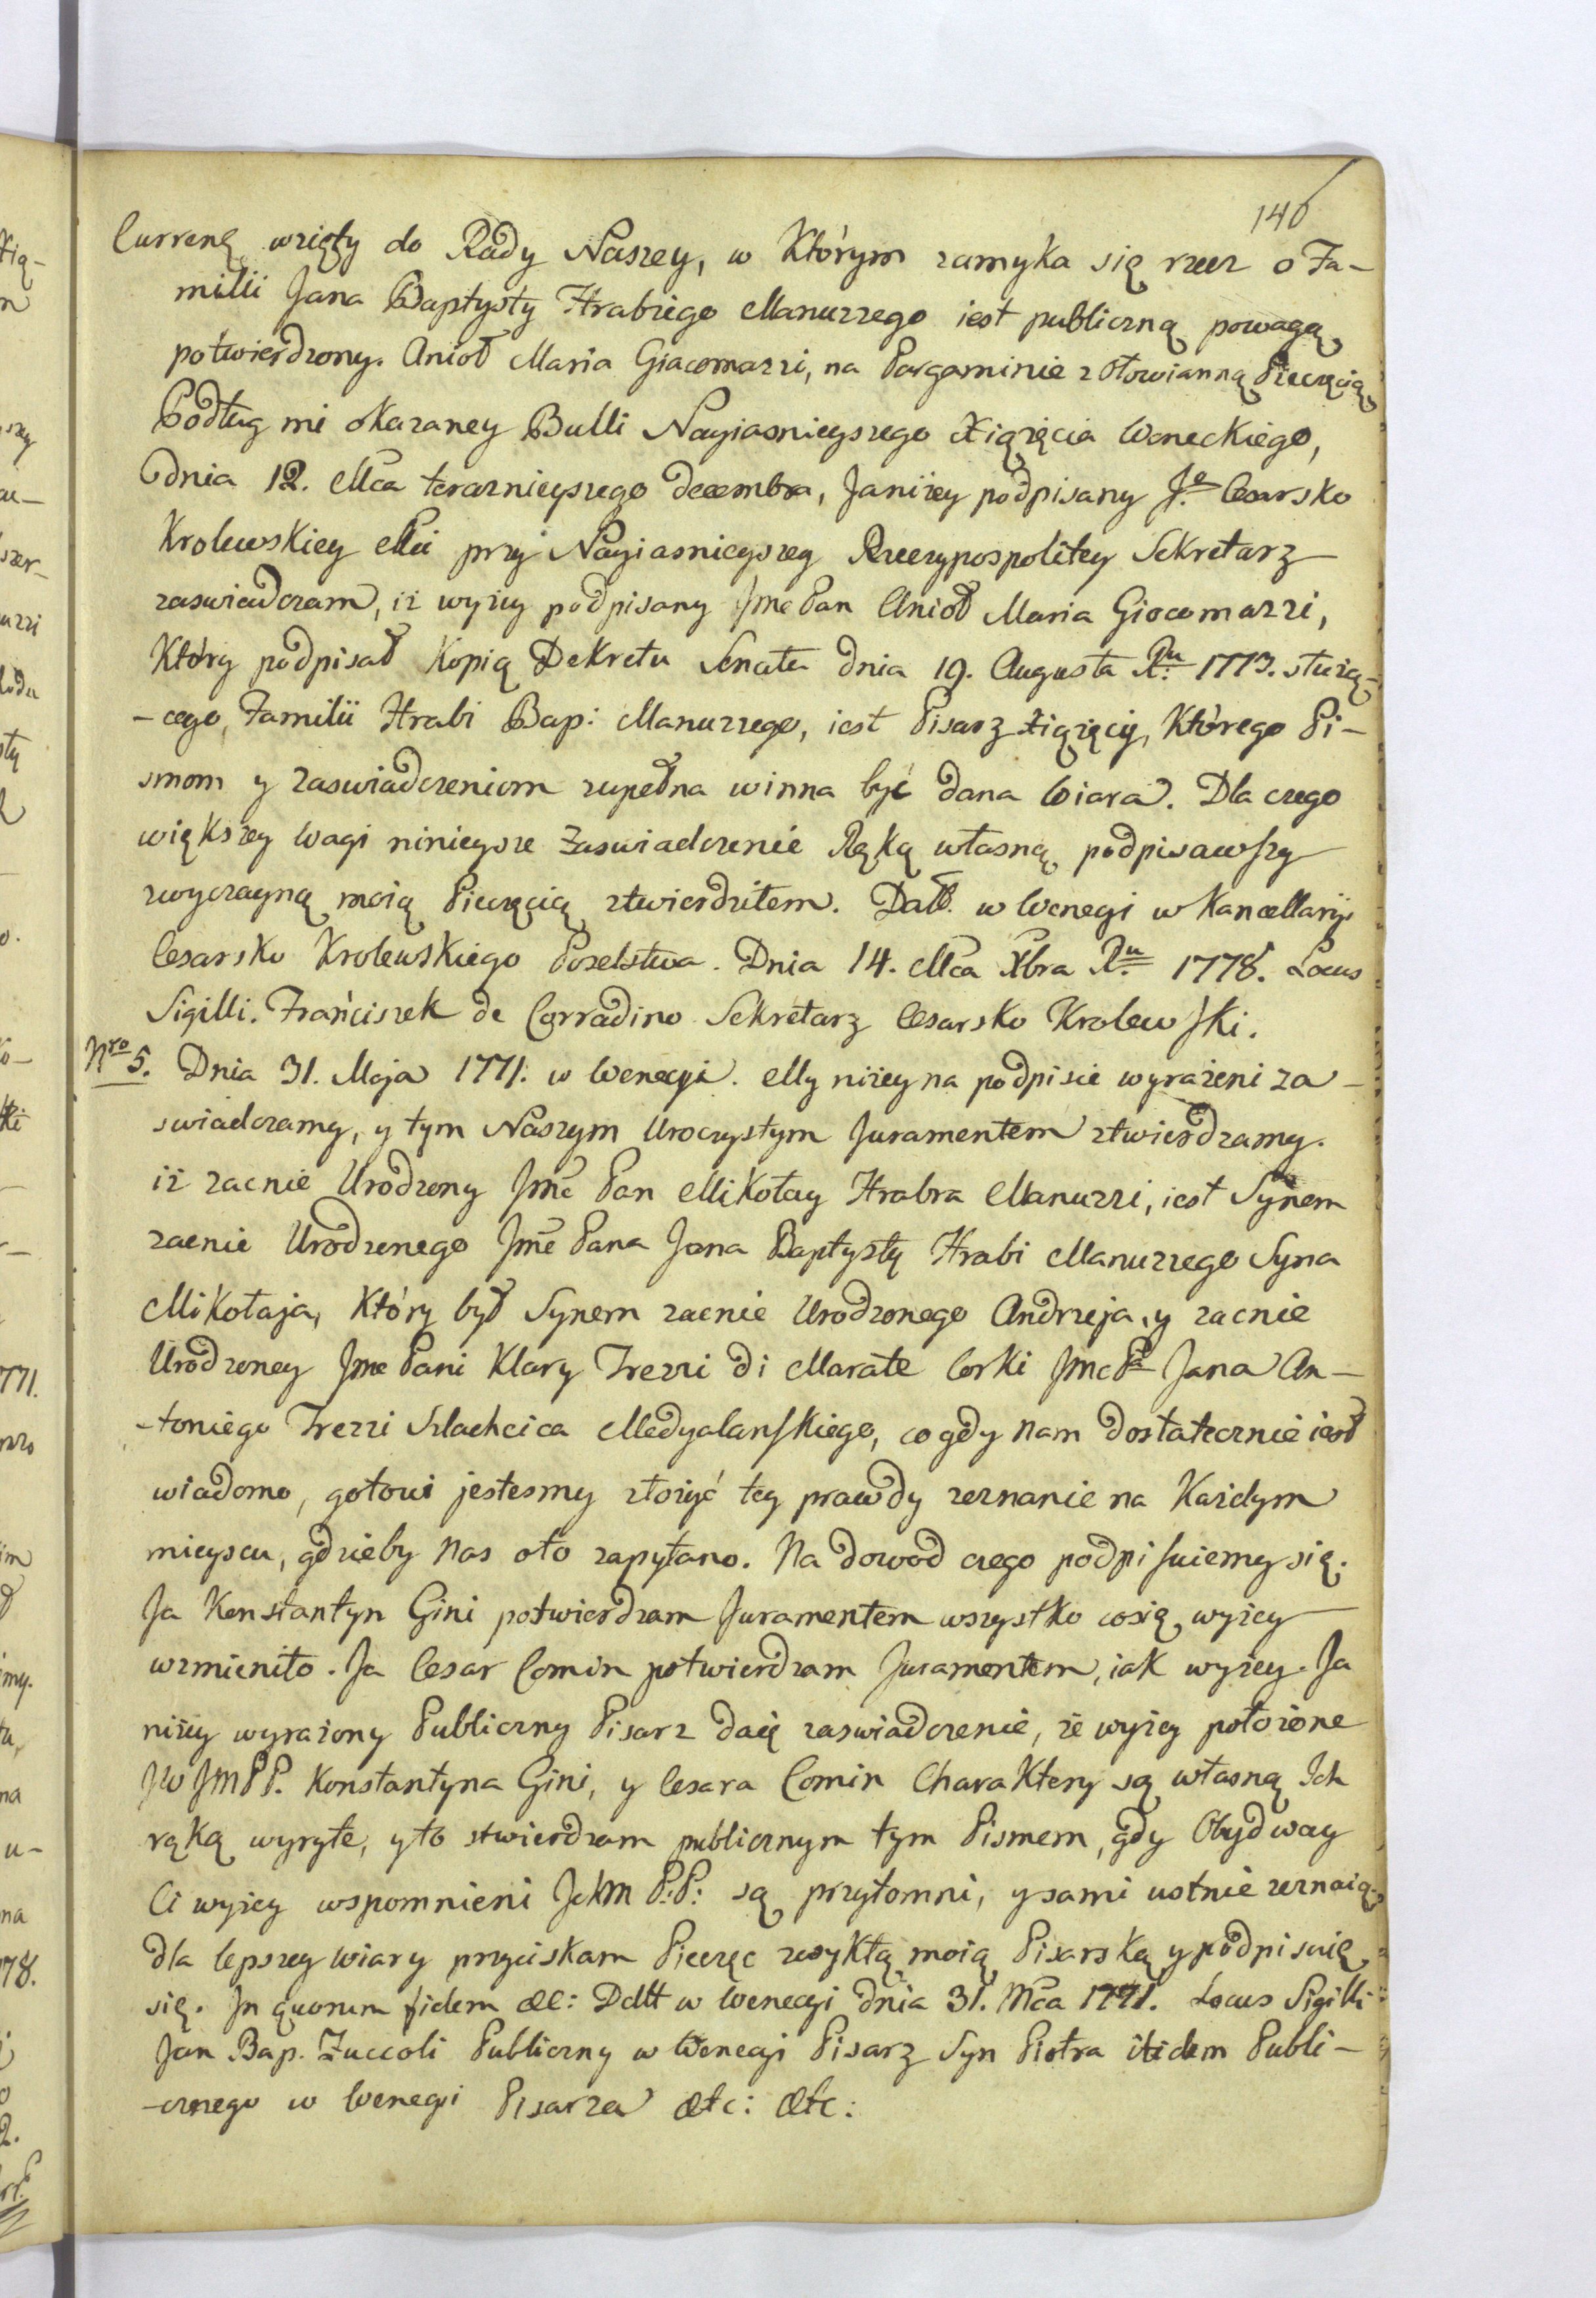 140
Currenę wzięty do Rady Naszey, w Którym zamyka się rzecz o Fa-
milii Jana Baptysty Hrabiego Manuzzego iest publiczną powagą
potwierdzony. Anioł Maria Giacomazzi, na Pargaminie z ołowianną Pieczęcią
Podług mi okazaney Bulli Nayiasnieyszego Xiążęcia Weneckiego,
Dnia 12. Mca teraznieyszego decembra, Ja niżey podpisany Je. Cesarsko
Krolewskiey Mci przy Nayiasnieyszey Rzeczypospolitey Sekretarz
zaswiadczam, iż wyżey podpisany Jmc Pan Anioł Maria Giocomazzi,
Który podpisał Kopią Dekretu Senatu dnia 19. Augusta Ru 1773. służą-
-cego, Familii Hrabi Bap: Manuzzego, iest Pisarz Xiążęcy, Którego Pi-
smom y zaswiadczeniom zupełna winna być dana Wiara. Dla czego
większey Wagi ninieysze Zaswiadczenie Ręką własną podpisawszy
zwyczayną moią Pieczęcią ztwierdziłem. Datt. w Wenegi w Kancellaryi
Cesarsko Krolewskiego Poselstwa. Dnia 14. Mca Xbra Ru 1778. Locus
Sigilli. Franciszek de Corradino Sekretarz Cesarsko Krolewski.
Nro 5. Dnia 31. Maja 1771. w Wenecyi. My niżey na podpisie wyrażeni za-
swiadczamy, y tym Naszym Uroczystym Juramentem ztwierdzamy.
iż zacnie Urodzony Jmc Pan Mikołay Hrabia Manuzzi, iest Synem
zacnie Urodzonego Jmc Pana Jana Baptysty Hrabi Manuzzego Syna
Mikołaja, Który był Synem zacnie Urodzonego Andrzeja, y zacnie
Urodzoney Jmc Pani Klary Trezzi di Marate Corki JmcPa Jana An-
-toniego Trezzi Szlachcica Medyalanskiego, co gdy Nam dostatecznie iest
wiadomo, gotowi jestesmy złożyć tey prawdy zeznanie na Każdym
mieyscu, gdzieby Nas oto zapytano. Na dowod czego podpisuiemy się.
Ja Konstantyn Gini potwierdzam Juramentem wszystko cosię wyżey
wzmieniło. Ja Cesar Comin potwierdzam Juramentem, iak wyżey. Ja
niżey wyrażony Publiczny Pisarz daię zaswiadczenie, że wyżey położone
JW JmPP. Konstantyna Gini, y Cesara Comin Charaktery są własną Ich
ręką wyryte, y to stwierdzam publicznym tym Pismem, gdy Obydway
Ci wyżey wspomnieni JchM P:P: są przytomni, y sami ustnie zeznaią.
dla lepszey Wiary przyciskam Pieczęc zwykłą moią Pisarską y podpisuię
się. In quorum fidem &c: Datt w Wenecyi dnia 31. Mca 1771. Locus Sigilli
Jan Bap. Zuccoli Publiczny w Wenecyi Pisarz Syn Piotra itidem Publi-
-cznego w Wenegii Pisarza etc: etc: